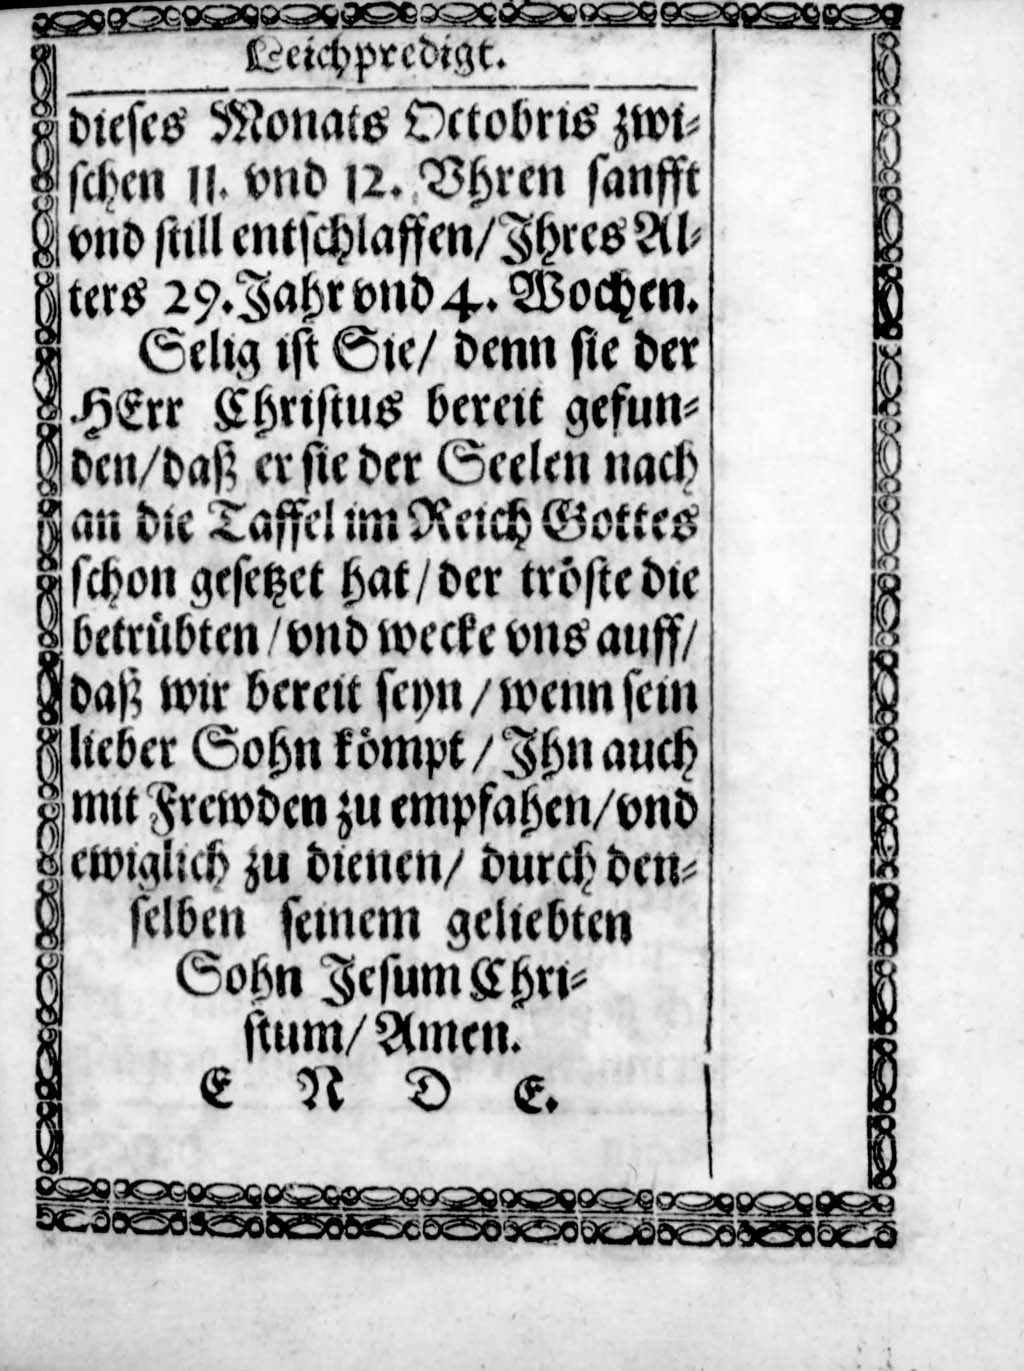 Leichpredigt.
dieſes Monats Octobris zwi⸗
ſchen 11. vnd 12. Vhren ſanfft
vnd ſtill entſchlaffen/ Jhres Al⸗
ters 29. Jahr vnd 4. Wochen.
Selig iſt Sie/ denn ſie der
HErr Chriſtus bereit gefun⸗
den/ daß er ſie der Seelen nach
an die Taffel im Reich Gottes
ſchon geſetzet hat/ der troͤſte die
betruͤbten/ vnd wecke vns auff/
daß wir bereit ſeyn/ wenn ſein
lieber Sohn koͤmpt/ Jhn auch
mit Frewden zu empfahen/ vnd
ewiglich zu dienen/ durch den⸗
ſelben ſeinem geliebten
Sohn Jeſum Chri⸗
ſtum/ Amen.
E N D E.